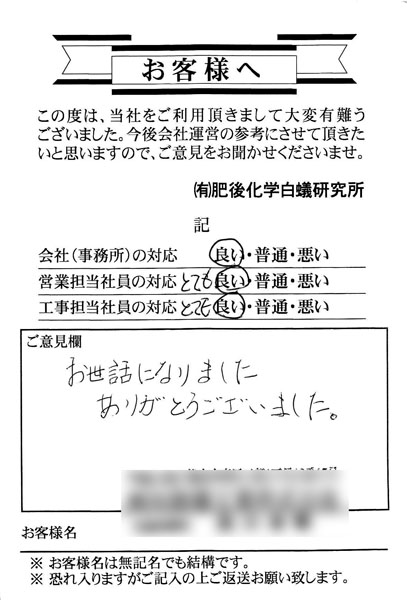 お客様へ
この度は、当社をご利用頂きまして大変有難う
ございました。今後会社運営の参考にさせて頂きた
いと思いますので、ご意見をお聞かせくださいませ。
㈲肥後化学白蟻研究所
記
会社（事務所）の対応 良い・普通・悪い
営業担当社員の対応 とても良い・普通・悪い
工事担当社員の対応 とても良い・普通・悪い
ご意見欄
お世話になりました
ありがとうございました。
お客様名
※ お客様名は無記名でも結構です。
※ 恐れ入りますがご記入の上ご返送お願い致します。